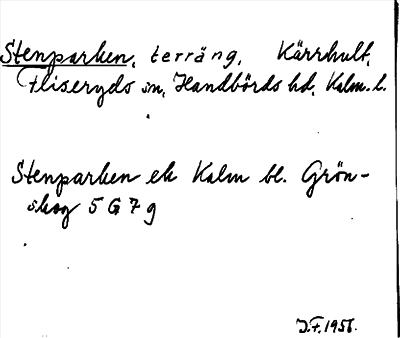 Stenparken, terräng, Kärrhult,
Fliseryds sn, Handbörds hd, Kalm. l.
Stenparken ek Kalm bl. Grön-
skog 5 G 7 g
J.F. 1956.